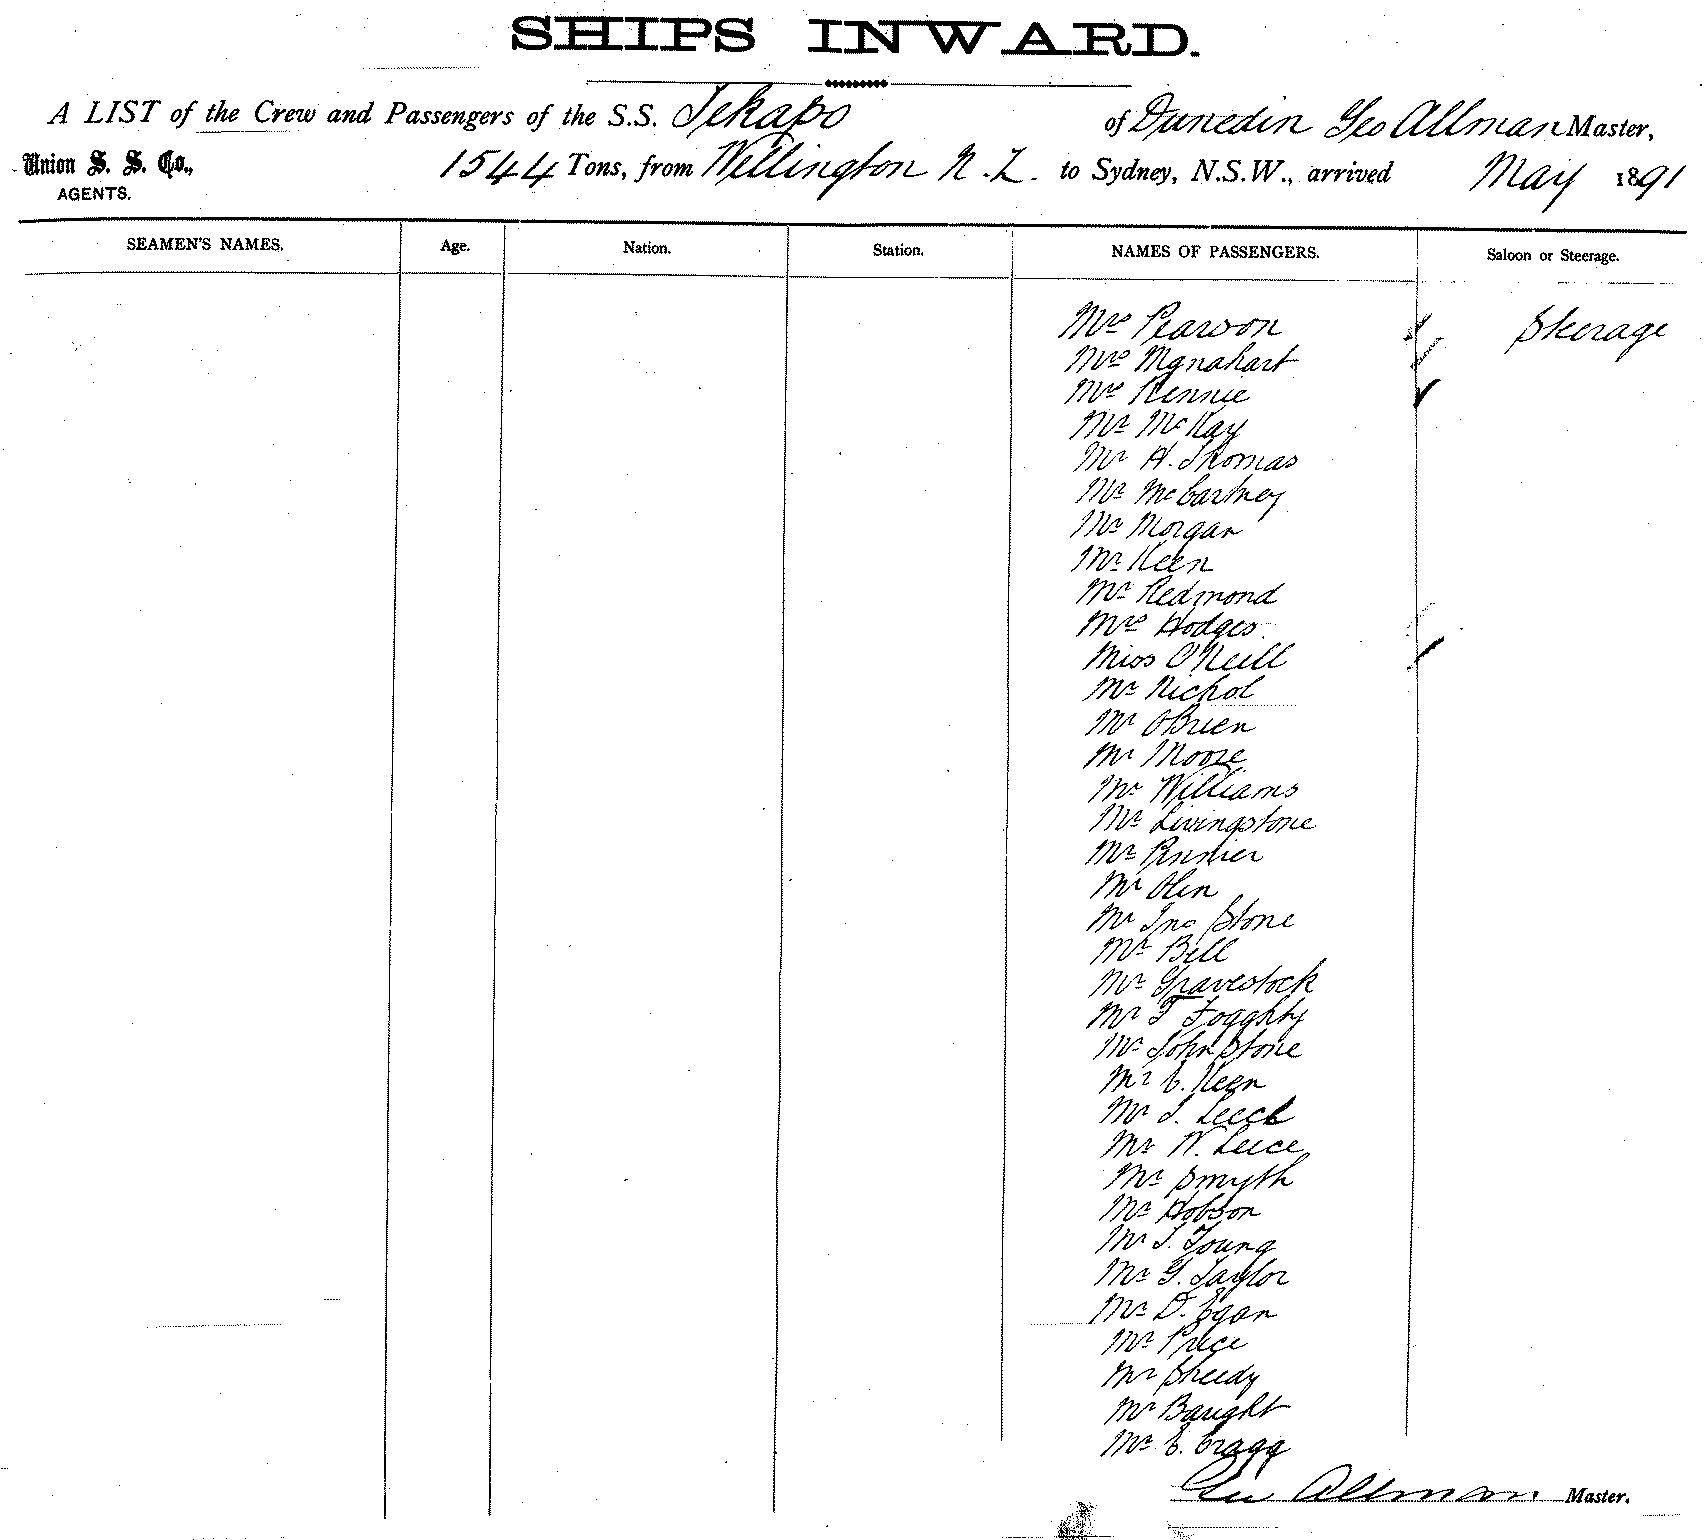 SHIPS INWARD.
A LIST of the Crew and Passengers of the S.S. Tekapo of Dunedin Geo Allman Master,
Union S. S. Co., 1544 Tons, from Wellington N.Z. to Sydney, N.S.W., arrived May 1891
AGENTS.
SEAMEN'S NAMES. Age. Nation. Station. NAMES OF PASSENGERS. Saloon or Steerage.
Mrs Pearson Steerage
Mrs
Mrs Rennie
Mr McKay
Mr H. Thomas
Mr McCartney
Mr Morgan
Mr Keen
Mr Redmond
Mrs Hodges
Miss O'Neill
Mr Nichol
Mr OBrien
Mr Moore
Mr Williams
Mr Livingstone
Mr
Mr Olen
Mr Jno Stone
Mr Bell
Mr Gravestock
Mr F Fogghty
Mr John Stone
Mr C. Keen
Mr J. Leeck
Mr W. Leece
Mr Smyth
Mr Hobson
Mr J. Young
Mr G. Taylor
Mr D. Egan
Mr Price
Mr Sheedy
Mr Baught
Mr C. Cragg
Geo Allman Master.